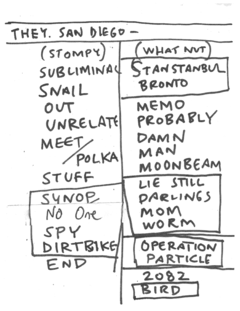 THEY. SAN DIEGO —
(STOMPY)
SUBLIMINAL
SNAIL
OUT
UNRELATE
MEET
/POLKA
STUFF
SYNOP
No One
SPY
DIRTBIKE
END
(WHAT NUT)
STANSTANBUL
BRONTO
MEMO
PROBABLY
DAMN
MAN
MOONBEAM
LIE STILL
DARLINGS
MOM
WORM
OPERATION
PARTICLE
2082
BIRD